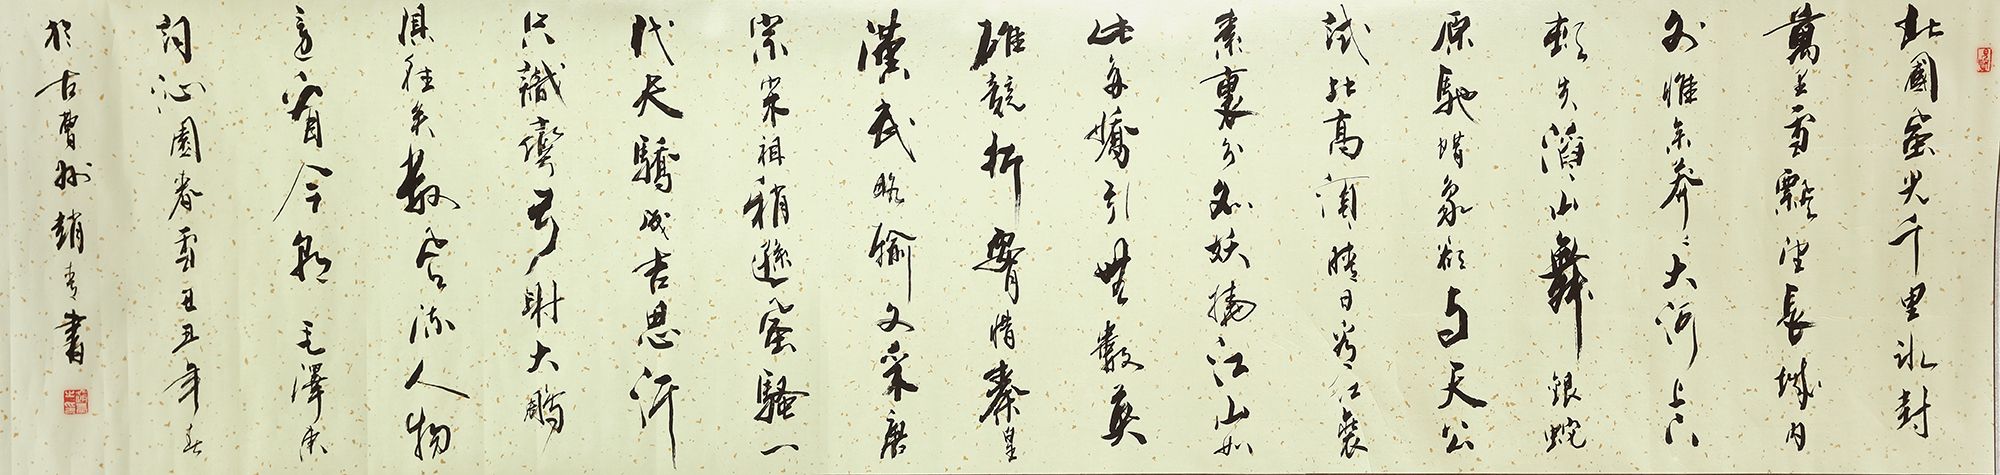 北國風光千里氷封
萬里雪飄望長城内
外惟余莽〻大河上下
頓失滔〻山舞銀蛇
原馳蜡象欲与天公
試比高須晴日看红裝
素裹分外妖擔江山如
此多嬌引無數英
雄競折腰惜秦皇
漢武略輸文采唐
宗宋祖稍遜風騷一
代天驕成吉思汗
只識彎弓射大雕
俱往矣數風流人物
還看今朝 毛澤東
詞沁園春雪 丑年春
於古曹州趙青書